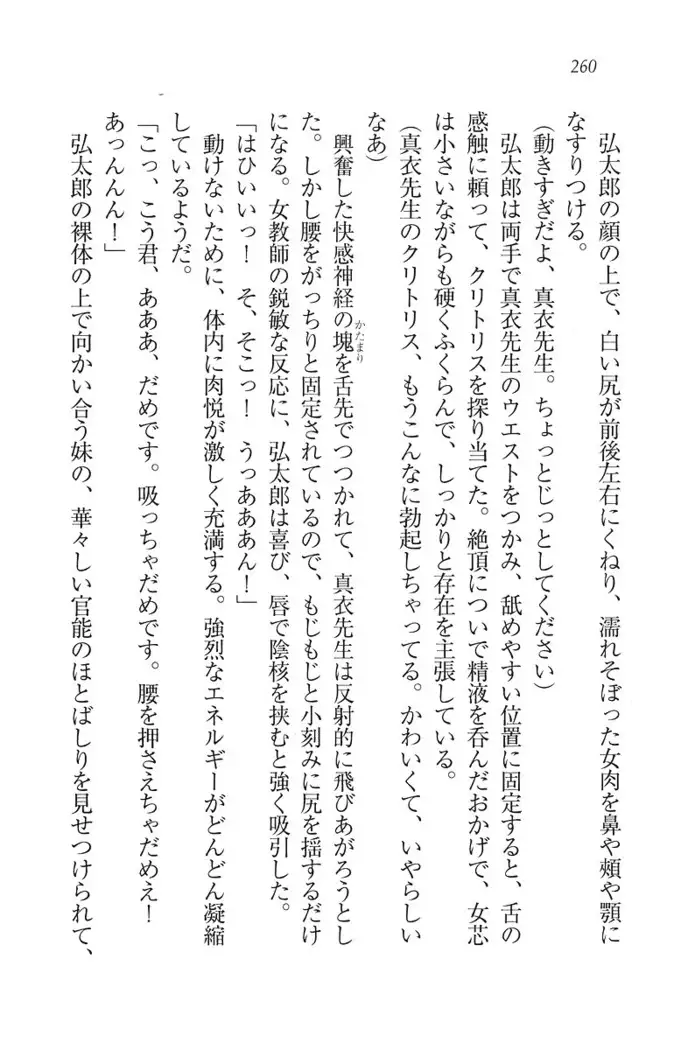 260
弘太郎の顔の上で、白い尻が前後左右にくねり、濡れそぼった女肉を鼻や頰や顎に
なすりつける。
(動きすぎだよ、真衣先生。ちょっとじっとしてください)
弘太郎は両手で真衣先生のウエストをつかみ、舐めやすい位置に固定すると、舌の
感触に頼って、クリトリスを探り当てた。絶頂についで精液を呑んだおかげで、女芯
は小さいながらも硬くふくらんで、しっかりと存在を主張している。
(真衣先生のクリトリス、もうこんなに勃起しちゃってる。かわいくて、いやらしい
なあ)
興奮した快感神経の塊を舌先でつつかれて、真衣先生は反射的に飛びあがろうとし
かたまり
た。しかし腰をがっちりと固定されているので、もじもじと小刻みに尻を揺するだけ
になる。女教師の鋭敏な反応に、弘太郎は喜び、唇で陰核を挟むと強く吸引した。
「はひいいっ! そ、そこっ! うっあああん!」
動けないために、体内に肉悦が激しく充満する。強烈なエネルギーがどんどん凝縮
しているようだ。
「こっ、こう君、あああ、だめです。吸っちゃだめです。腰を押さえちゃだめえ!
あっんんん!」
弘太郎の裸体の上で向かい合う妹の、華々しい官能のほとばしりを見せつけられて、